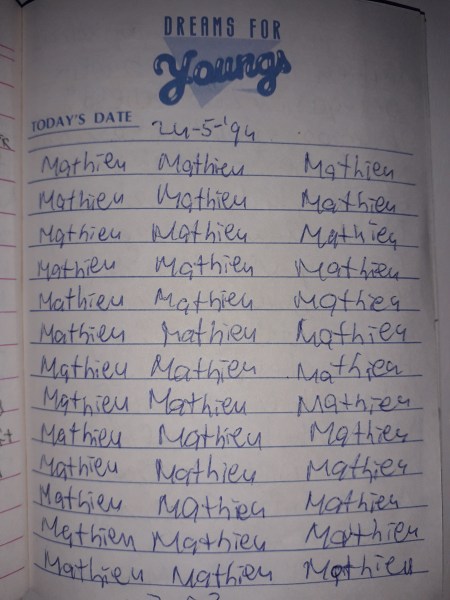 DREAMS FOR
Youngs
TODAY'S DATE 24-5-'94
Mathieu Mathieu Mathieu
Mathieu Mathieu Mathieu
Mathieu Mathieu Mathieu
Mathieu Mathieu Mathieu
Mathieu Mathieu Mathieu
Mathieu Mathieu Mathieu
Mathieu Mathieu Mathieu
Mathieu Mathieu Mathieu
Mathieu Mathieu Mathieu
Mathieu Mathieu Mathieu
Mathieu Mathieu Mathieu
Mathieu Mathieu Mathieu
Mathieu Mathieu Mathieu